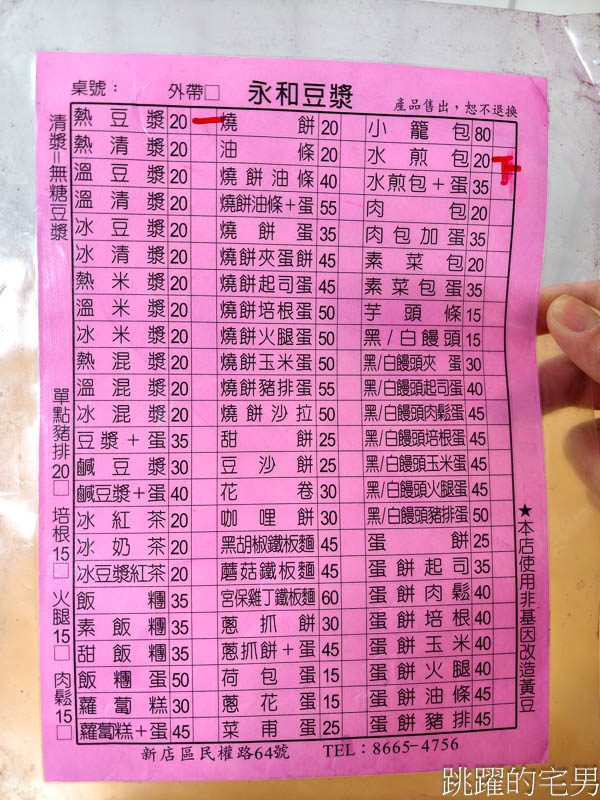 桌號： 外帶□ 永和豆漿 產品售出，恕不退換
清漿=無糖豆漿
單點豬排20□ 培根15□ 火腿15□ 肉鬆15□
熱豆漿 20 燒餅 20 小籠包 80
熱清漿 20 油條 20 水煎包 20
溫豆漿 20 燒餅油條 40 水煎包+蛋 35
溫清漿 20 燒餅油條+蛋 55 肉包 20
冰豆漿 20 燒餅蛋 35 肉包加蛋 35
冰清漿 20 燒餅夾蛋餅 45 素菜包 20
熱米漿 20 燒餅起司蛋 45 素菜包蛋 35
溫米漿 20 燒餅培根蛋 50 芋頭條 15
冰米漿 20 燒餅火腿蛋 50 黑/白饅頭 15
熱混漿 20 燒餅玉米蛋 50 黑/白饅頭夾蛋 30
溫混漿 20 燒餅豬排蛋 55 黑/白饅頭起司蛋 40
冰混漿 20 燒餅沙拉 50 黑/白饅頭肉鬆蛋 45
豆漿+蛋 35 甜餅 25 黑/白饅頭培根蛋 45
鹹豆漿 30 豆沙餅 25 黑/白饅頭玉米蛋 45
鹹豆漿+蛋 40 花卷 30 黑/白饅頭火腿蛋 45
冰紅茶 20 咖哩餅 30 黑/白饅頭豬排蛋 50
冰奶茶 20 黑胡椒鐵板麵 45 蛋餅 25
冰豆漿紅茶 20 蘑菇鐵板麵 45 蛋餅起司 35
飯糰 35 宮保雞丁鐵板麵 60 蛋餅肉鬆 40
素飯糰 35 蔥抓餅 30 蛋餅培根 40
甜飯糰 35 蔥抓餅+蛋 45 蛋餅玉米 40
飯糰蛋 50 荷包蛋 15 蛋餅火腿 40
蘿蔔糕 30 蔥花蛋 15 蛋餅油條 45
蘿蔔糕+蛋 45 菜甫蛋 25 蛋餅豬排 45
★本店使用非基因改造黃豆
新店區民權路64號 TEL：8665-4756
跳躍的宅男